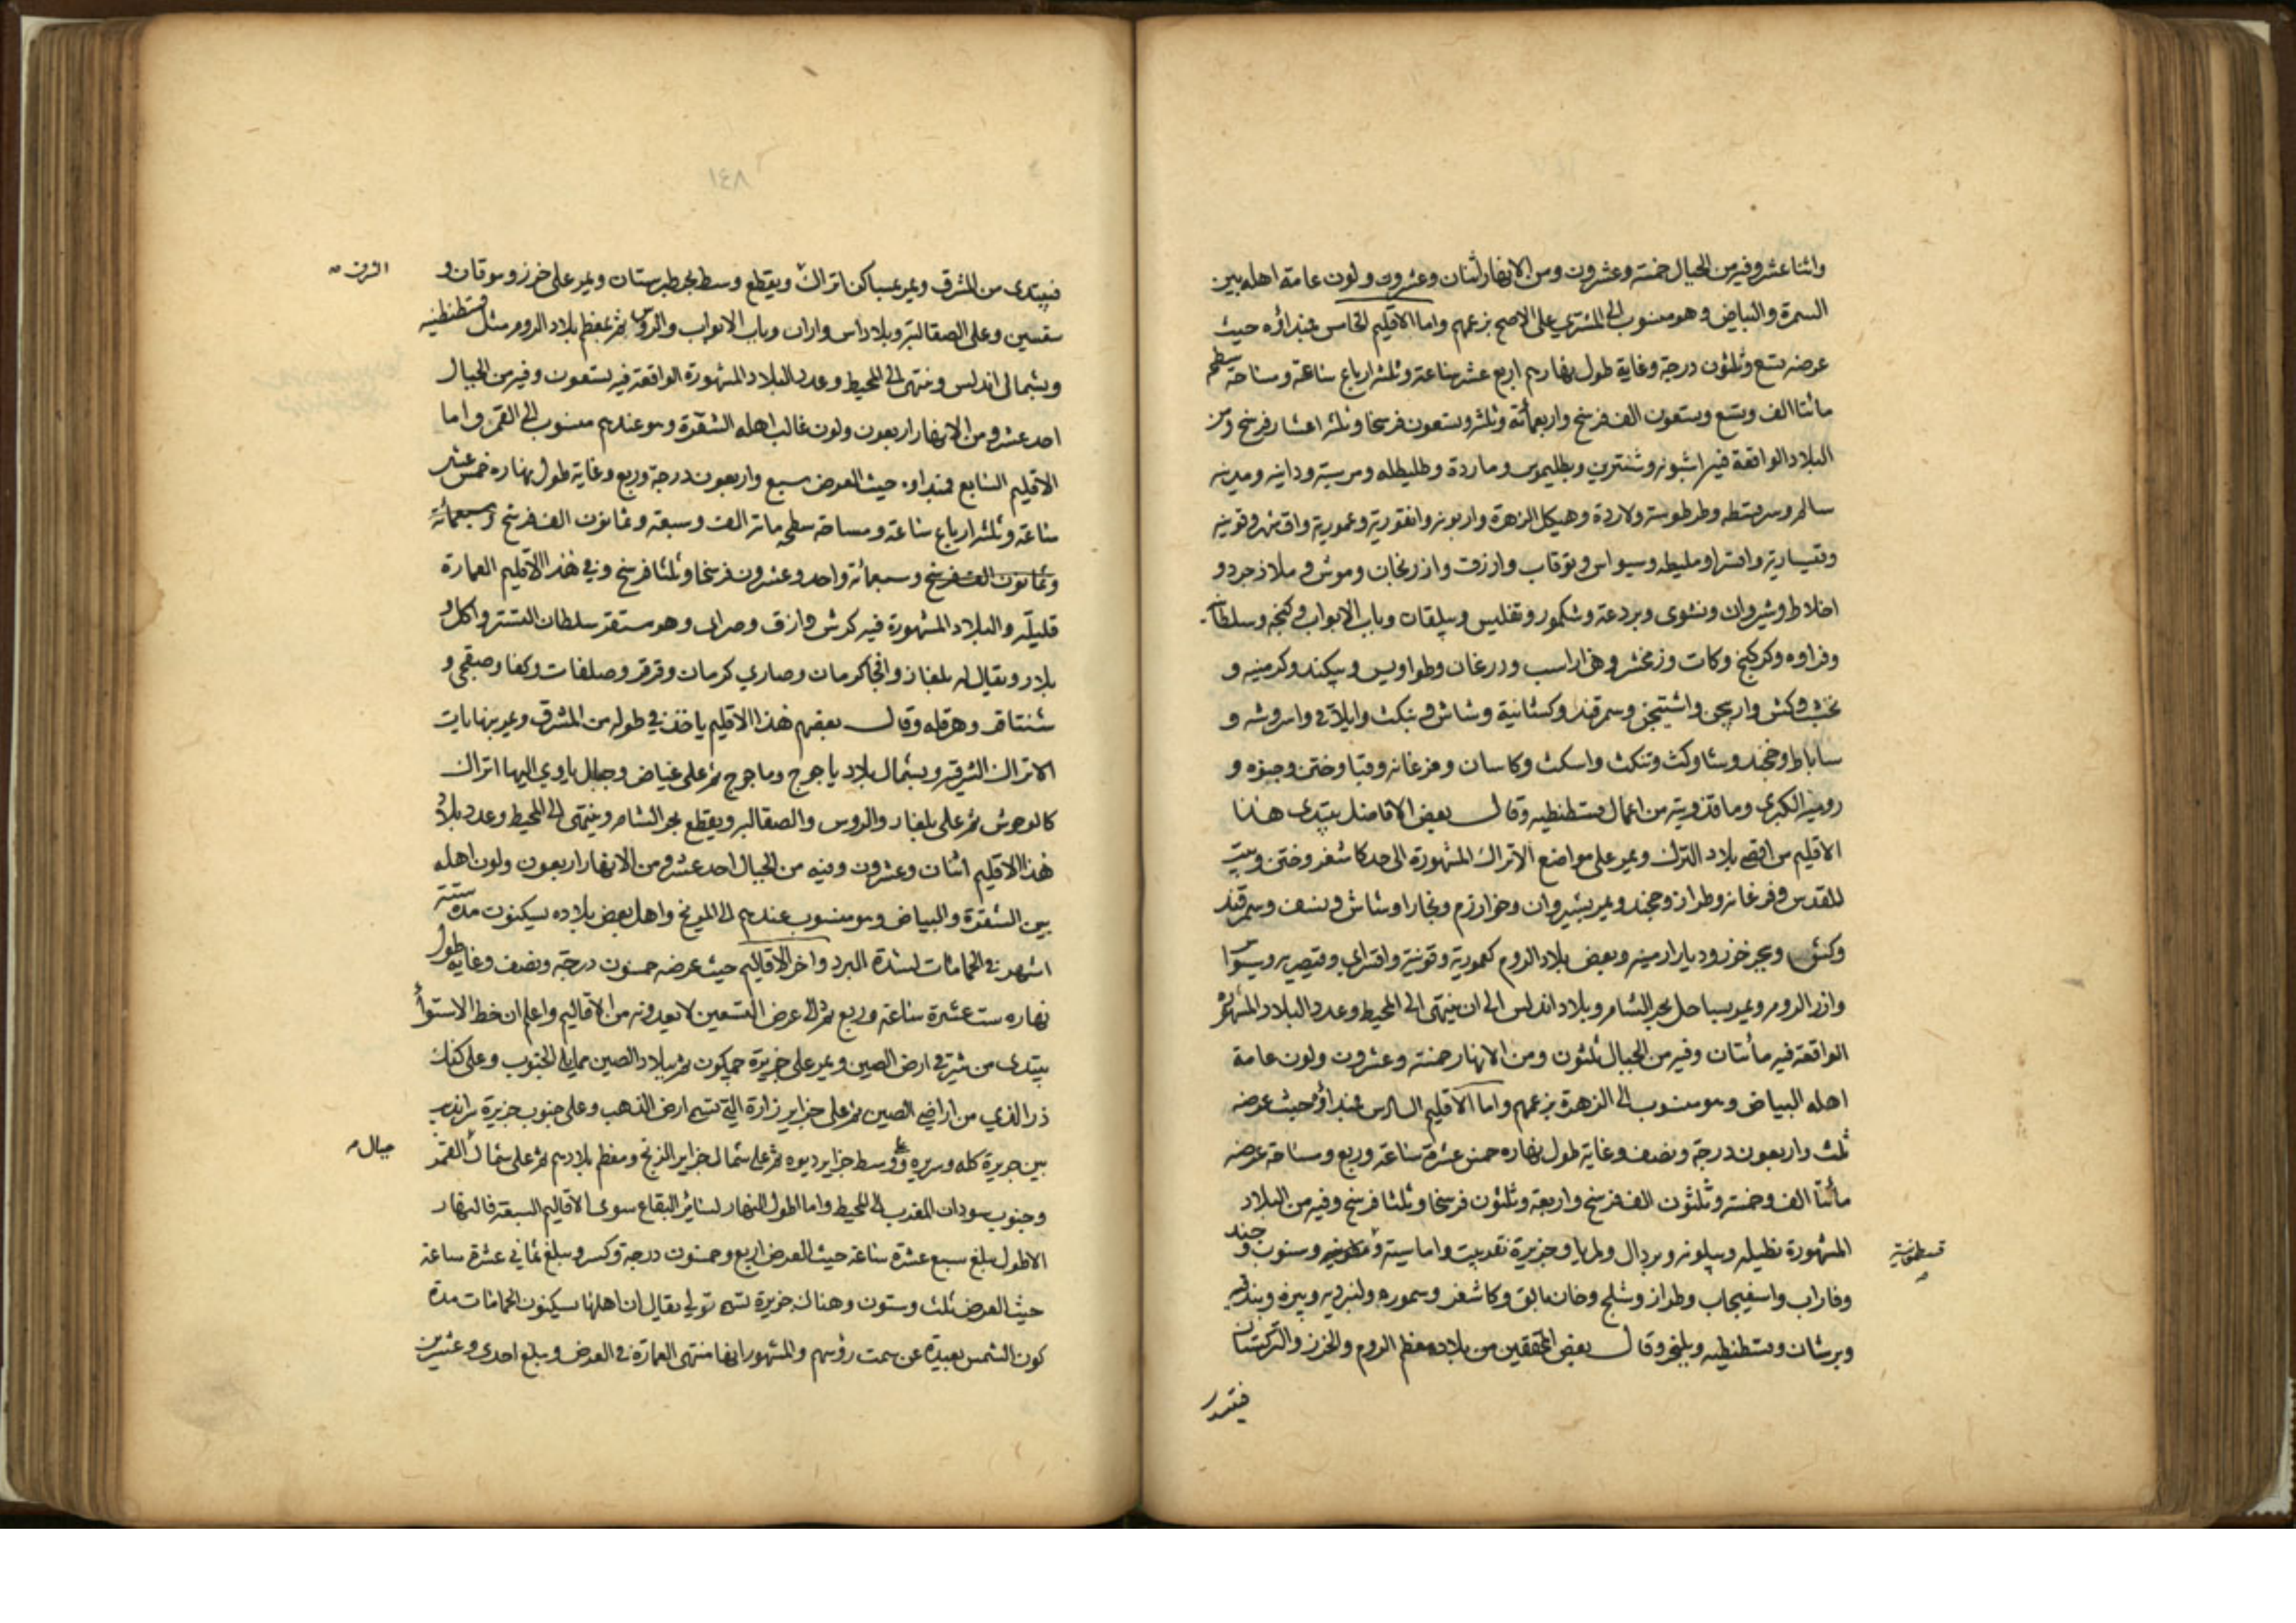 واثنا عشر وفيه من الجبال خمسة وعشرون ومن الانهار اثنان وعشرون ولون عامة اهله بين
السمرة والبياض وهو منسوب الى المشتري على الاصح بزعمهم واما الاقليم الخامس فمبداؤه حيث
عرضه تسع وثلثون درجة وغاية طول نهارهم اربع عشر ساعة وثلثة ارباع ساعة ومساحة سطحه
مائتا الف وتسع وتسعون الف فرسخ واربعمائة وثلثة وتسعون فرسخا وثلثة اعشار فرسخ ومن
البلاد الواقعة فيه اشبونه وشنترين وبطليوس وماردة وطليطله ومرسية ودانيه ومدينه
سالم وسرقسطه وطرطوسة ولاردة وهيكل الزهرة واربونه وانقورية وعمورية واقشهر وقونيه
وقيسارية واقسرا وملطيه وسيواس وتوقات وارزن وارزنجان وموش وملازجرد و
اخلاط وشروان ونشوى وبردعة وشمكور وتفليس وبيلقان وباب الابواب وكنجه وسلطان
وفراوه وكركنج وكات وزمخشر وهزاراسب ودرغان وطواويس وبيكند وكرمينه و
نخشب وكش واربجن واشتيخن وسمرقند وكشانية وشاش وبنكث وايلاق واسروشه و
ساباط وخجند وشاوكث وتنكث واسكث وكاسان وفرغانه وقبا وختن وجنزه و
رومية الكبرى وماقدونيه من اعمال قسطنطنيه وقال بعض الافاضل يبتدى هذا
الاقليم من اقصى بلاد الترك ويمر على مواضع الاتراك المشهورة الى حد كاشغر وختن وبيت
المقدس وفرغانه وطراز وخجند ويمر بشيروان وخوارزم وبخارا وشاش ونسف وسمرقند
وكش وبحر خزر وديار ارمينه وبعض بلاد الروم كعمورية وقونية واقسراى وقيصريه وسيواس
وارز الروم ويمر بساحل بحر الشام وبلاد اندلس الى ان ينتهى الى المحيط وعدد البلاد المشهورة
الواقعة فيه مأتان وفيه من الجبال ثلثون ومن الانهار خمسة وعشرون ولون عامة
اهله البياض وهو منسوب الى الزهرة بزعمهم واما الاقليم السادس فمبداؤه حيث عرضه
ثلث واربعون درجة ونصف وغاية طول نهاره خمس عشرة ساعة وربع ومساحة عرضه
مأتا الف وخمسة وثلثون الف فرسخ واربعة وثلثون فرسخا وثلثا فرسخ وفيه من البلاد
المشهورة تطيله وبنبلونه وبردال ولمريا وجزيرة نقدبيت واماسية وسنوب وجند
قسطمونية
وفاراب واسفيجاب وطراز وشلج وخان بالق وكاشغر وسموره
وبرشان وقسطنطنيه وبلنجر وقال بعض المحققين من بلاده معظم الروم والخزر والتركستان
فيبتدى
١٤٨
فيبتدى من المشرق ويمر بمساكن اتراك ويقطع وسط بحر طبرستان ويمر على خزر وموقان و
الشرق
سقسين وعلى الصقالبة وبلاد اس واران وباب الابواب والروس ثم بمعظم بلاد الروم مثل قسطنطنيه
وبشمالى اندلس وينتهى الى المحيط وعدد البلاد المشهورة الواقعة فيه تسعون وفيه من الجبال
احد عشر ومن الانهار اربعون ولون غالب اهله الشقرة وهو عندهم منسوب الى القمر واما
الاقليم السابع فمبداؤه حيث العرض سبع واربعون درجة وربع وغاية طول نهاره خمس عشر
ساعة وثلثة ارباع ساعة ومساحة سطحه مائة الف وسبعة وثمانون الف فرسخ وسبعمائة
وثمانون الف فرسخ وسبعمائة واحد وعشرون فرسخا وثلثا فرسخ وفي هذا الاقليم العمارة
قليلة والبلاد المشهورة فيه كرش وازق وصراى وهو مستقر سلطان التتر واكل و
بلار ويقال له بلغار وافجا كرمان وصاري كرمان وقرقر وصلغات وكفا وصقجى و
شنتاقو وهرقله وقال بعضهم هذا الاقليم ياخذ في طوله من المشرق ويمر بنهايات
الاتراك الشرقية وبشمال بلاد ياجوج وماجوج ثم على غياض وجبال ياوي اليها اتراك
كالوحوش ثم على بلغار والروس والصقالبه ويقطع بحر الشام وينتهى الى المحيط وعدد بلاد
هذا الاقليم اثنان وعشرون وفيه من الجبال احد عشر ومن الانهار اربعون ولون اهله
بين الشقرة والبياض وهو منسوب عندهم الى المريخ واهل بعض بلاده يسكنون مدة ستة
اشهر في الحمامات لشدة البرد واخر الاقاليم حيث عرضه خمسون درجة ونصف وغاية طول
نهاره ست عشرة ساعة وربع ثم الى عرض التسعين لا يعدونه من الاقاليم واعلم ان خط الاستواء
يبتدى من شرقي ارض الصين ويمر على جزيرة جمكوت ثم ببلاد الصين مما يلى الجنوب وعلى كنك
دز الذي من اراضي الصين ثم على جزاير زارة التي تسمى ارض الذهب وعلى جنوب جزيرة سرانديب
بين جزيرة كله وسريره وعلى وسط جزاير ديوه ثم على شمال جزاير الزنج ومعظم بلادهم ثم على شمال القمر
جبال
وجنوب سودان المغرب الى المحيط واما اطول النهار لسائر البقاع سوى الاقاليم السبعة فالنهار
الاطول يبلغ سبع عشرة ساعة حيث العرض اربع وخمسون درجة وكسر ويبلغ ثماني عشرة ساعة
حيث العرض ثلث وستون وهناك جزيرة تسمى تولى يقال ان اهلها يسكنون الحمامات مدة
كون الشمس بعيدة عن سمت رؤسهم والمشهور انها منتهى العمارة في العرض ويبلغ احدى وعشرين